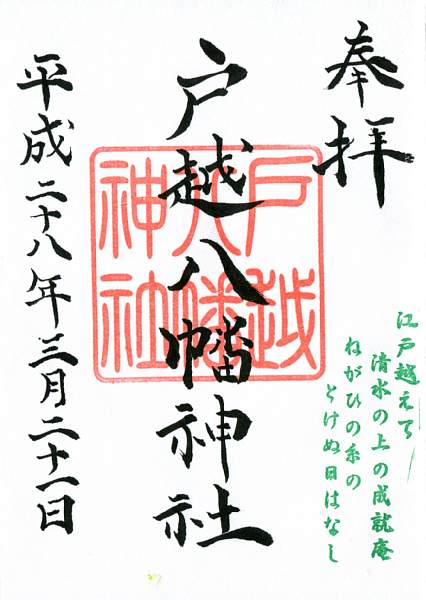 奉拝
江戸越えて
清水の上の成就庵
ねがひの糸の
とけぬ日はなし
戸越八幡神社
戸越
八幡
神社
平成二十八年三月二十一日